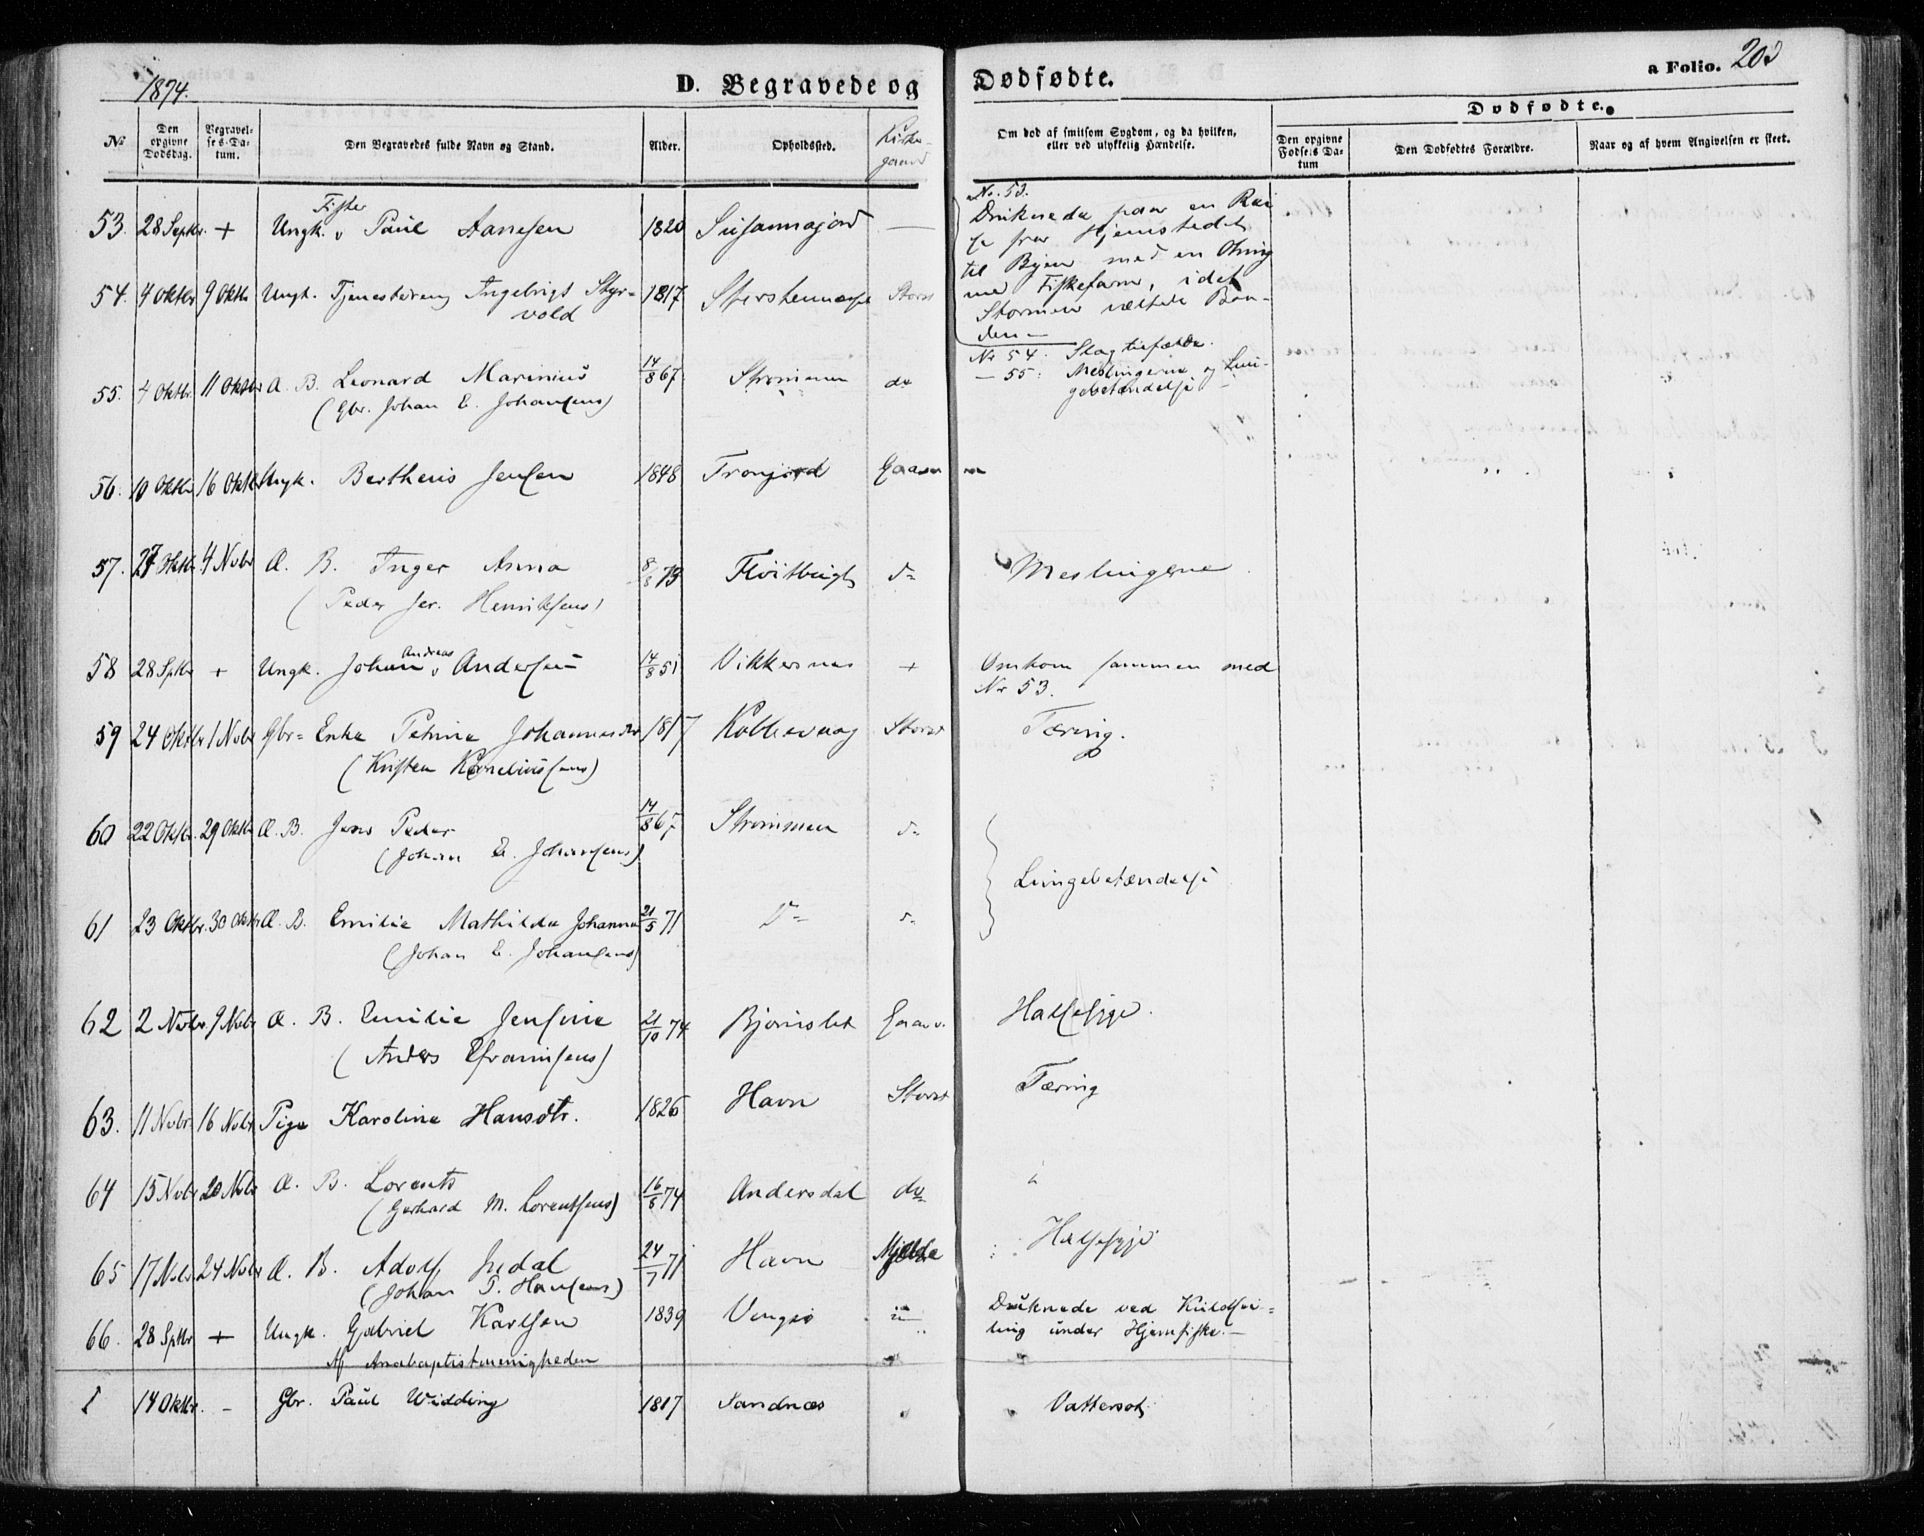 1874.
D. Begravede og Dødfødte.
a Folio. 203
Dødfødte.
No
Den opgivne Dødsdag.
Begravelses-Datum.
Den Begravedes fulde Navn og Stand.
Alder.
Opholdssted.
Kirkegaard
Om død af smitsom Sygdom, og da hvilken, eller ved ulykkelig Hændelse.
Den opgivne Fødsels Datum
Den Dødfødtes Forældre.
Naar og af hvem Angivelsen er skeet.
53. 28 Septbr. + Ungk. Fisker Paul Aanesen 1820 Susannajord —
No. 53.
Druknede paa en Rei
se fra Hjemstedet
til Byen med en Otring
med Fiskefarm, idet
Stormen væltede Baa-
den —
54. 4 Oktbr 9 Oktb Ungk. Tjenestedreng Ingebrigt Styr-
vold 1817 Storst
Nr 54: Slagtilfælde.
55. 4 Oktbr. 11 Oktbr Æ. B. Leonard Marinius 14/8 67 Strømmen do
— 55: Meslingerne og Lun-
gebetændelse
(Gbr. Johan E. Johansens)
56. 10 Oktbr 16 Oktb Ungk. Bertheus Jensen 1848 Tronjord
57. 27 Oktb 4 Novbr Æ. B. Inger Anna 8/8 73 do Meslingerne
(Peder Jer. Henriksens)
58 28 Sptbr + Ungk. Johan Andreas Andersen 14/8 51 Vikkernæs + Omkom sammen med
Nr 53.
59 24 Oktbr 1 Novbr Gbr= Enke Petrine Johannesdtr 1817 Kobbevaag Storst Tæring.
(Kristen Kornelius sens)
60 22 Oktbr. 29 Oktb Æ. B. Jens Peder 14/8 67 Strømmen do
(Johan E. Johansens)
Lungebetændelse
61 23 Oktbr. 30 Oktbr Æ. B. Emilie Mathilde Johanna 21/5 71 Do do
(Johan E. Johansens)
62 2 Novbr. 9 Novbr Æ. B. Emilie Jensine 21/10 74 Bjørnslet Halsesyge.
(Anders Efraimsens)
63. 11 Novbr. 16 Novbr Pige Karoline Hansdtr. 1826 Havn Storst Tæring
64 15 Novbr 20 Novbr Æ. B. Lorents 16/8 74 Andersdal do
(Gerhard M. Lorentsens)
65 17 Novbr 24 Novbr Æ. B. Adolf Jredal 24/7 71 Havn Mjelde Halsesyge
(Johan P. Hansens)
66. 28 Sptbr + Ungk. Gabriel Karlsen 1839 Vengsø Druknede ved Kuldsei-
ling under Hjemfiske. —
Af Anabaptistmenigheden
1 14 Oktbr. – Gbr. Paul Widding 1817 Sandnæs Vattersot